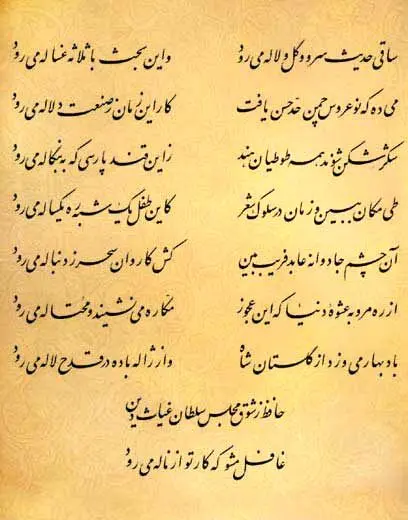 ساقی حدیث سرو و گل و لاله می رود واین بحث با ثلاثه غساله می رود
می ده که نو عروس چمن حد حسن یافت کار این زمان ز صنعت دلاله می رود
شکر شکن شوند همه طوطیان هند زاین قند پارسی که به بنگاله می رود
طی مکان ببین و زمان در سلوک شعر کاین طفل یک شبه ره یکساله می رود
آن چشم جادوانه عابد فریب بین کش کاروان سحر ز دنباله می رود
از ره مرو به عشوه دنیا که این عجوز مکاره می نشیند و محتاله می رود
باد بهار می وزد از گلستان شاه واز ژاله باده در قدح لاله می رود
حافظ ز شوق مجلس سلطان غیاث دین
غافل مشو که کار تو از ناله می رود